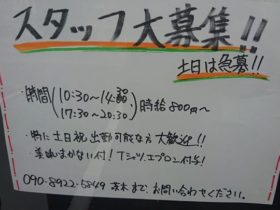 スタッフ大募集!!
土日は急募!!
・時間(10:30〜14:30
17:30〜20:30)時給800円〜
・特に土日祝出勤可能な方大歓迎!!
美味いまかない付!Tシャツ、エプロン付与!
090-8922-5849 茨木まで、お問い合わせください。